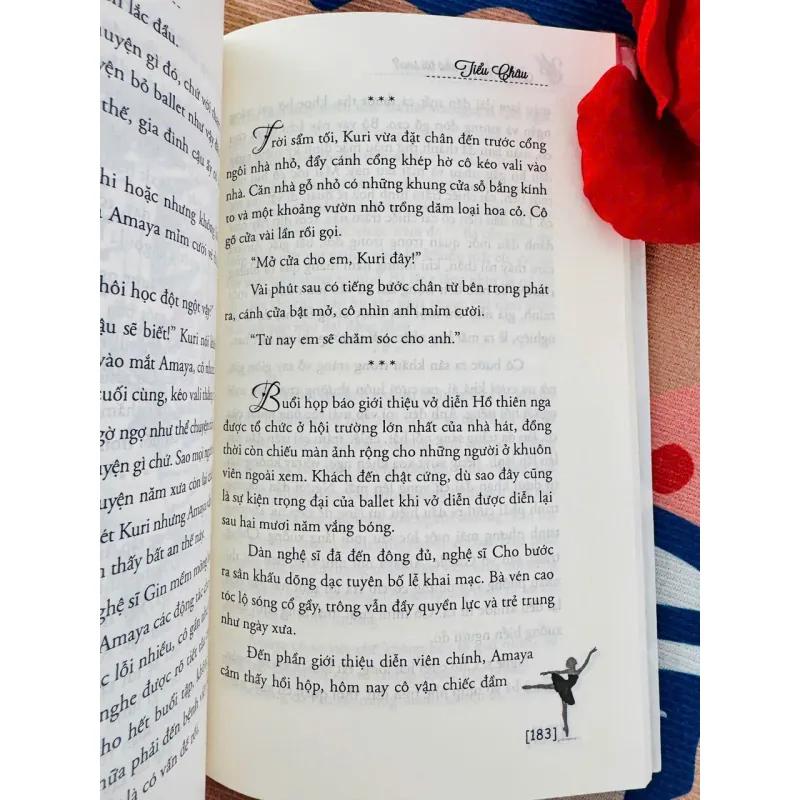 n lắc đầu.
uyện gì đó, chứ với
yện bỏ ballet như vậy
thế, gia đình cậu ấy
hi hoặc nhưng không
Amaya mỉm cười
hôi học đột ngột vậy?”
ậu sẽ biết!” Kuri nói
vào mắt Amaya, cô
cuối cùng, kéo vali
gờ ngợ như thể chuyện
uyện gì chứ. Sao mọi
uyện năm xưa còn
ét Kuri nhưng Amaya
n thấy bất an thế nào.
ghệ sĩ Gin mềm mỏng
Amaya các động tác
c lỗi nhiều, cô gắn
nghe được rõ tiết tấu
ho hết buổi tập,
nữa phải đến bệnh
là có vấn đề rồi.
Tiểu Châu
***
Trời sẩm tối, Kuri vừa đặt chân đến trước cổng
ngôi nhà nhỏ, đẩy cánh cổng khép hờ cô kéo vali vào
nhà. Căn nhà gỗ nhỏ có những khung cửa sổ bằng kính
to và một khoảng vườn nhỏ trồng dăm loại hoa cỏ. Cô
gõ cửa vài lần rồi gọi.
“Mở cửa cho em, Kuri đây!”
Vài phút sau có tiếng bước chân từ bên trong phát
ra, cánh cửa bật mở, cô nhìn anh mỉm cười.
“Từ nay em sẽ chăm sóc cho anh.”
***
Buổi họp báo giới thiệu vở diễn Hồ thiên nga
được tổ chức ở hội trường lớn nhất của nhà hát, đồng
thời còn chiếu màn ảnh rộng cho những người ở khuôn
viên ngoài xem. Khách đến chật cứng, dù sao đây cũng
là sự kiện trọng đại của ballet khi vở diễn được diễn lại
sau hai mươi năm vắng bóng.
Dàn nghệ sĩ đã đến đông đủ, nghệ sĩ Cho bước
ra sân khấu dõng dạc tuyên bố lễ khai mạc. Bà vén cao
tóc lộ sóng cổ gầy, trông vẫn đầy quyền lực và trẻ trung
như ngày xưa.
Đến phần giới thiệu diễn viên chính, Amaya
cảm thấy hồi hộp, hôm nay cô vận chiếc đầm
[183]